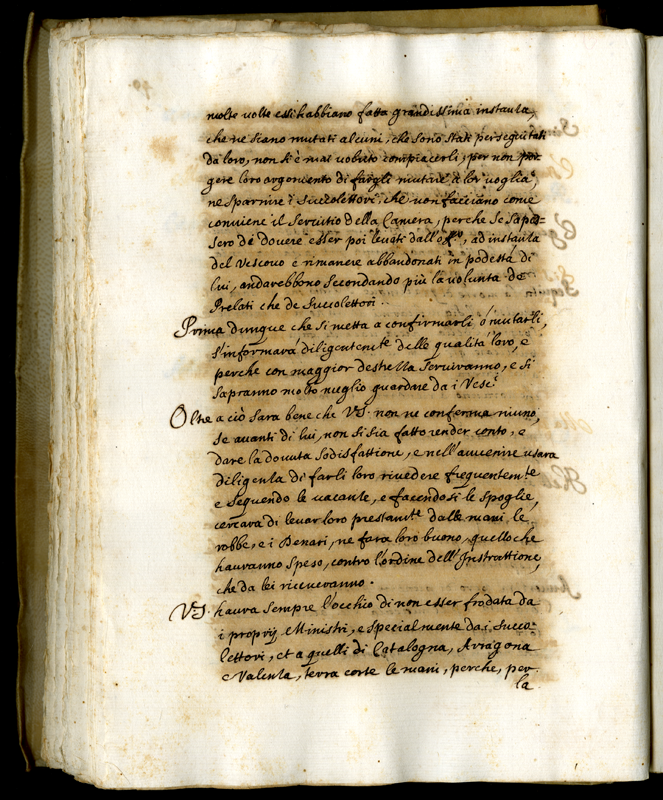 molte volte essi habbiano fatta grandissima instanza,
che ne siano mutati alcuni, che sono stati perseguitati
da loro, non si è mai voluto compiacerli, per non por=
gere loro argomento di fargli mutare à lor voglia,
ne sparmire i succolettori, che non facciano come
conviene il servitio della Camera, perche se sapes=
sero de dovere esser poi levati dall'offo, ad instanza
del Vescovo e rimanere abbandonati in podestà di
lui, andarebbono secondando più la volunta de
Prelati che de succolettori.
Prima dunque che si metta a confirmarli ò mutarli,
s'informarà diligentemte delle qualità loro, e
perche con maggior destrezza serviranno, e si
sapranno molto meglio guardare da i Vesci
Oltre a ciò sara bene che VS. non ne conferma niuno,
se avanti di lui, non si sia fatto render conto, e
dare la dovuta sodisfattione, e nell'avvenire usara
diligenza di farli loro rivedere frequentemte
e seguendo le vacante, e facendosi le spoglie,
cercarà di levar loro prestamte dalle mani le
robbe, e i Denari, ne fara loro buono, quello che
hauranno speso, contro l'ordine dell'Instruttione,
che da lei riceveranno.
VS. haura sempre l'occhio di non esser frodata da
i proprij Ministri, e specialmente da i succo=
lettori, et a quelli di Catalogna, Arragona
e Valenza, terra corte le mani, perche, per
la